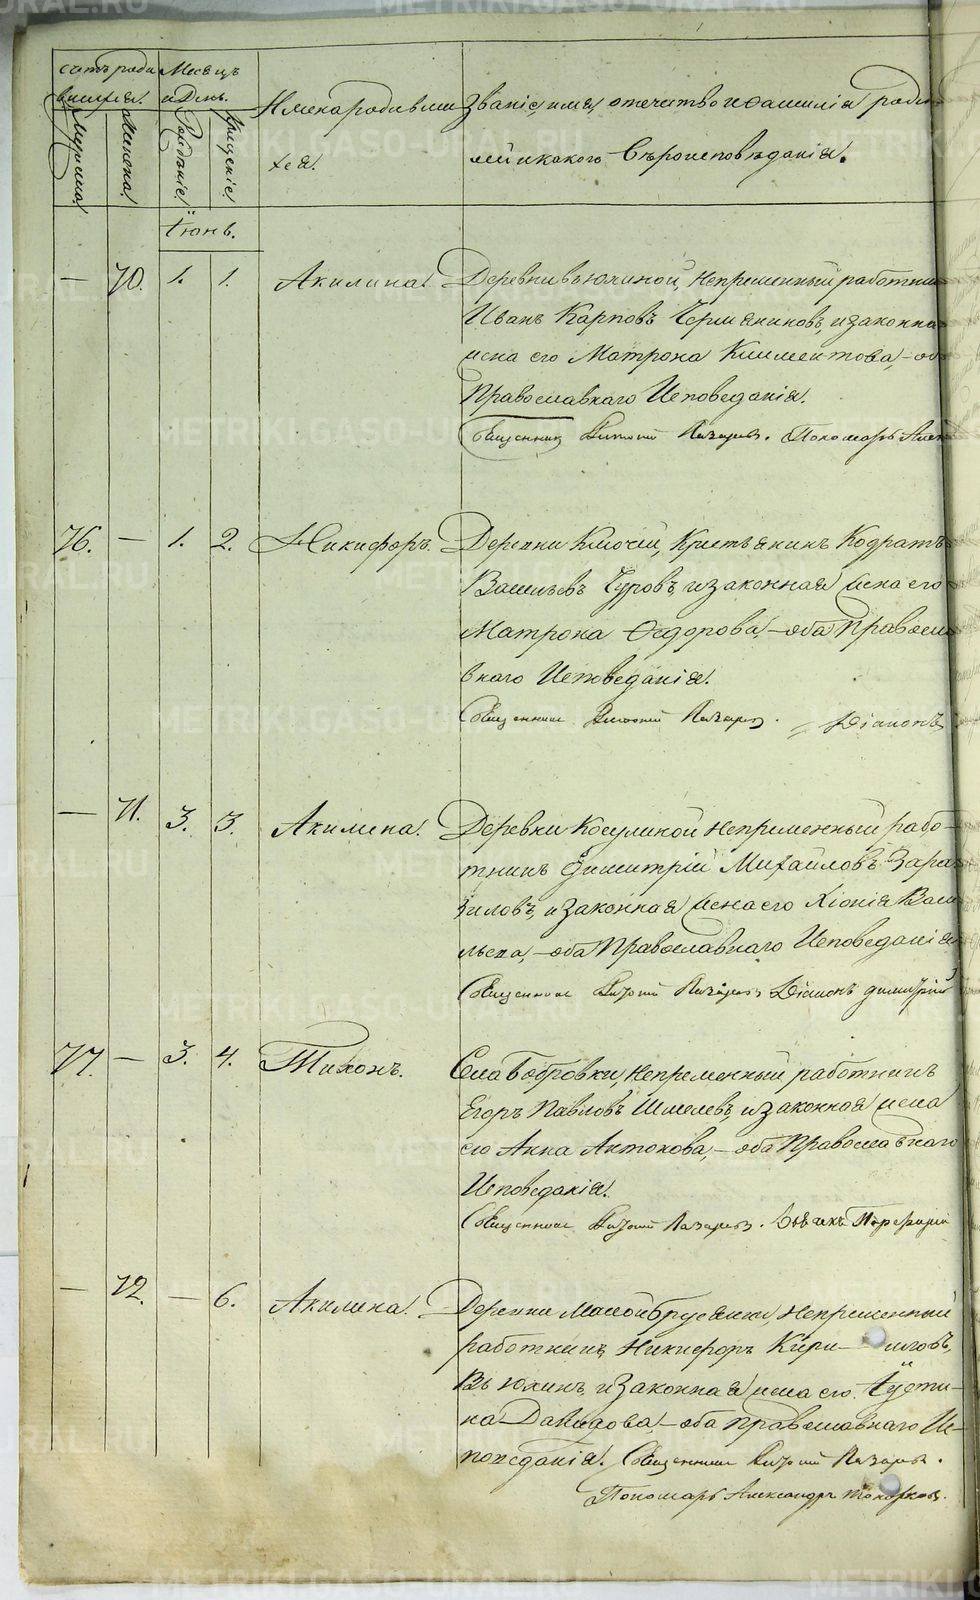 Счетъ роди Месяцъ
вшихся. и День.
Имена родивши
Званіе, имя, отечество и фамилія роди
хся.
лей и какого Вѣроисповѣданія.
Мужска.
Женска.
Рожденіе.
Крещеніе.
Іюнь.
— 70. 1. 1. Акилина. Деревни Вьюхиной, Непременный работни
Иванъ Карповъ Чермяниновъ, и законна
жена его Матрона Климентова, – об
Православнаго Исповеданія.
Священник Лазаревъ. Пономарь Алек
76. — 1. 2. Никифоръ. Деревни Ключей, Крестьянинъ Кодратъ
Васильевъ Чуровъ, и законная жена его
Матрона Федорова, – оба Правосла
внаго Исповеданія.
Священник Лазаревъ. Діаконъ
— 71. 3. 3. Акилина. Деревни Косулиной Непременный рабо–
тникъ Димитрій Михайловъ Зара
зиловъ, и законная жена его Хіонія Васи
льева, – оба Православнаго Исповеданія
Священник Лазаревъ Діаконъ Димитрій
77. — 3. 4. Тихонъ. Села Бобровки, Непременный работникъ
Егоръ Павловъ Шмелевъ, и законная жена
его Анна Антонова, – оба Православнаго
Исповеданія.
Священник Лазаревъ. Дьячекъ Порфирій
— 72. — 6. Акилина. Деревни Малой Брусянки, Непременный
работникъ Никифоръ Кири– иловъ,
Вьюхинъ, и законная жена его Іусти–
на Давидова, – оба Православнаго Ис–
поведанія. Священник Лазаревъ.
Пономарь Александръ Топорковъ.
METRIKI.GASO-URAL.RU